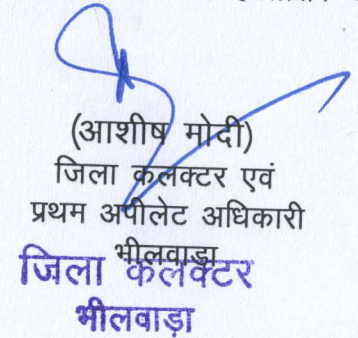 (आशीष मोदी)
जिला कलक्टर एवं
प्रथम अपीलेट अधिकारी
भीलवाड़ा
जिला कलक्टर
भीलवाड़ा